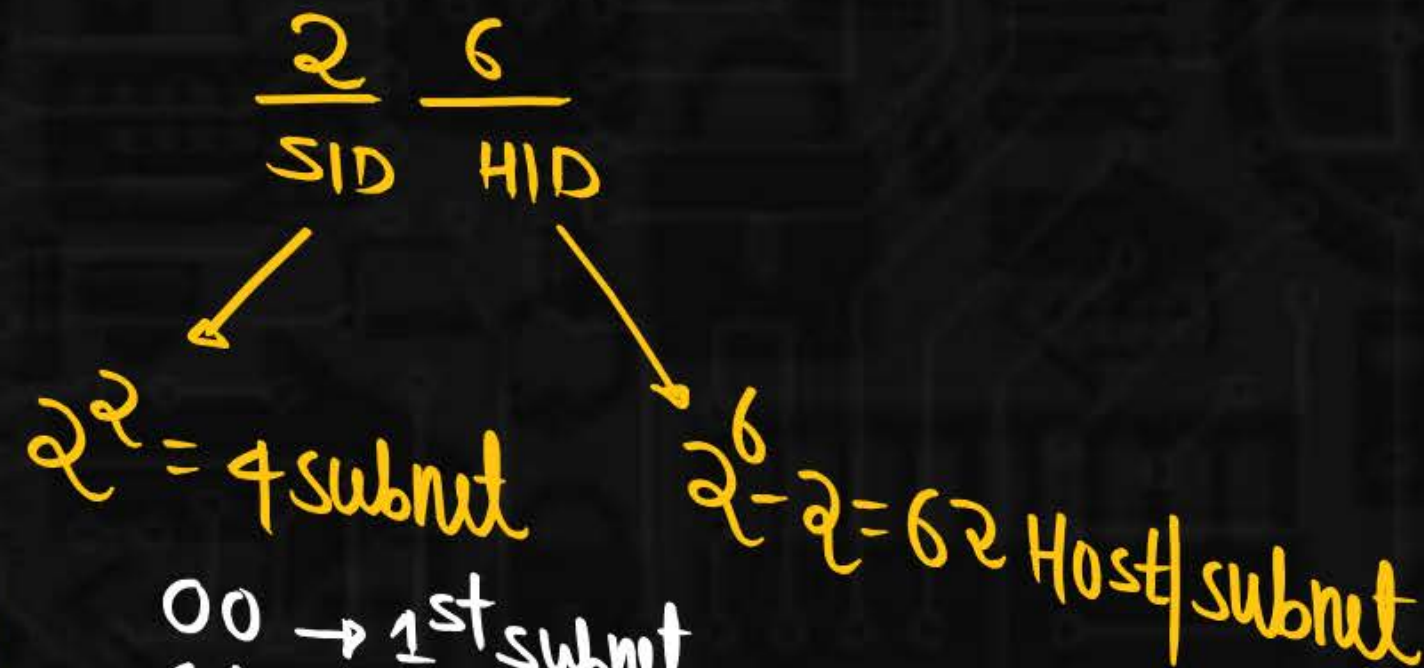 2 6
SID HID
2² = 4 subnet
2⁶-2=62 Host/subnet
00 → 1st subnet